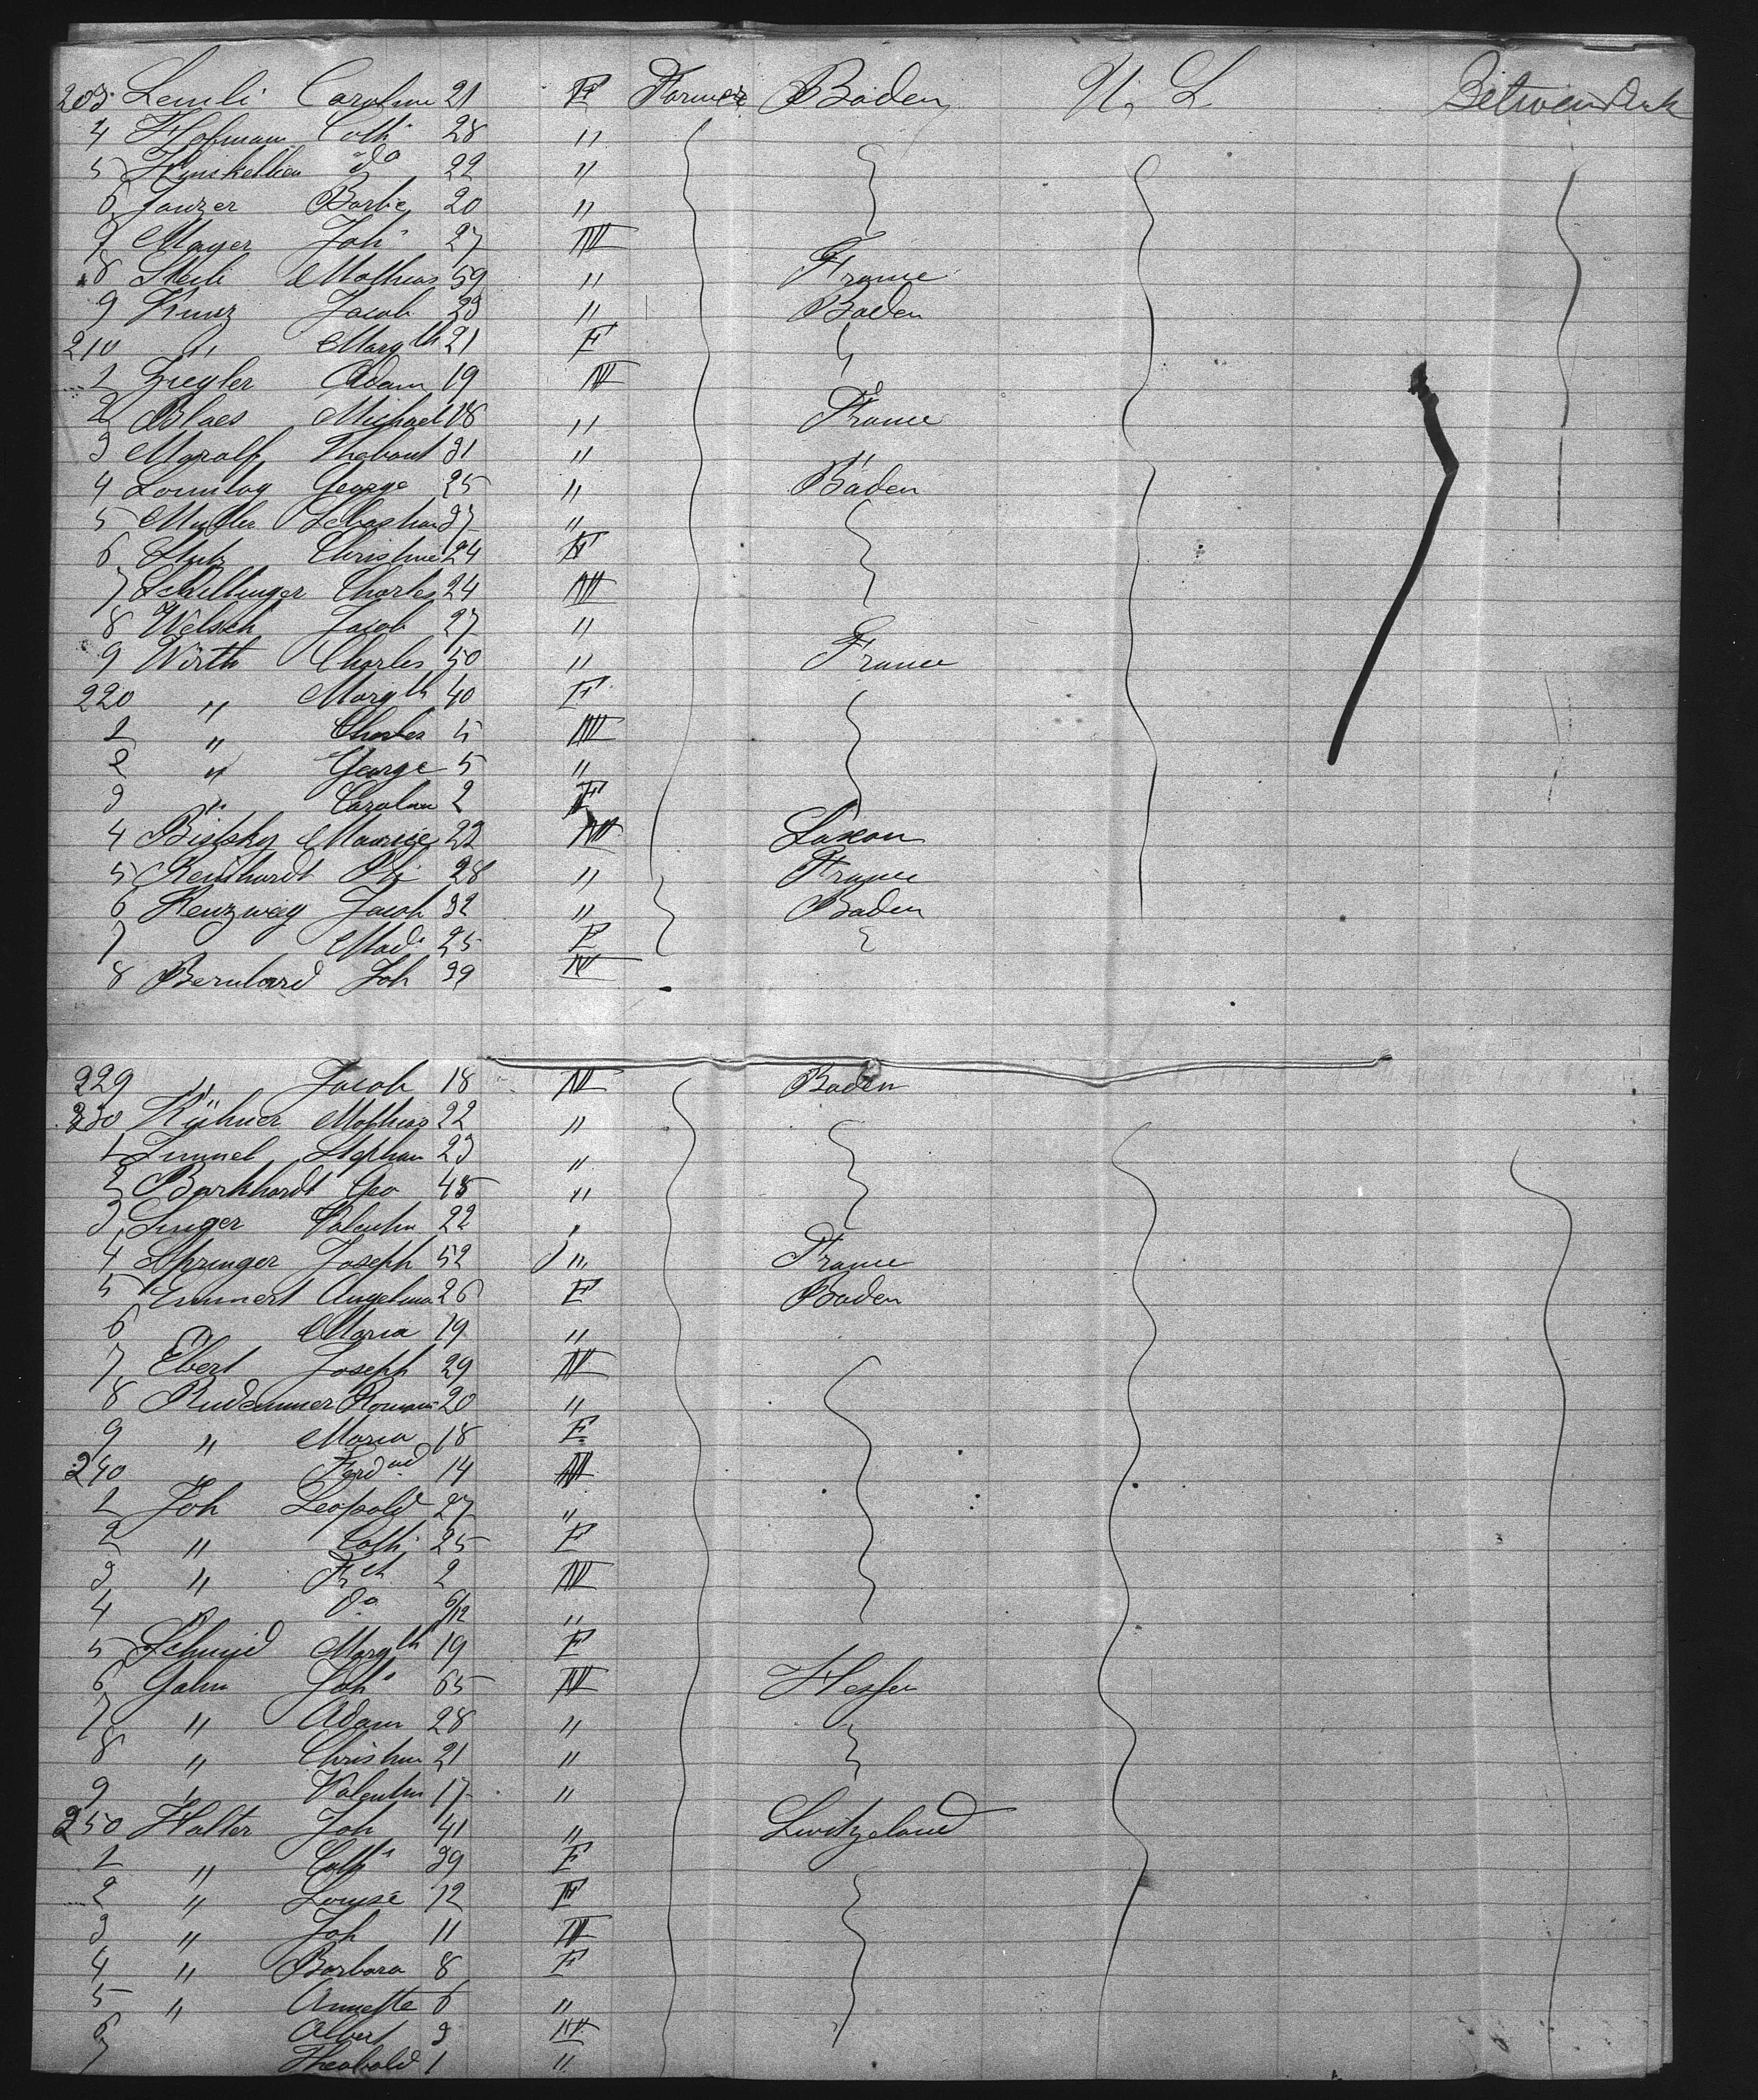 203 Lemli Caroline 21 F Farmer Baden U. S. Between deck
4 Hofmann Cath. 28 "
5 do 22 "
6 Janzer Barb. 20 "
7 Mayer Joh. 27 M
8 Mathias 59 " France
9 Kunz Jacob 23 " Baden
210 " Margth 21 F
1 Ziegler Adam 19 M
2 Blaes Michael 18 " France
3 Thebaut 31 " "
4 Sonntag George 25 " Baden
5 Muller Sebastian 37 "
6 Christine 24 F
7 Schillinger Charles 24 M
8 Welsch Jacob 27 "
9 Wirth Charles 50 " France
220 " Margth 40 F
1 " Charles M
2 " George 5 "
3 " Carolina 2 F
4 Maurice 22 M Saxon
5 Reinhardt 28 " France
6 Kenzweig Jacob 32 " Baden
7 Mad. 25 F
8 Bernhard Joh 39 M
229 " Jacob 18 M Baden
230 Kühner Mathias 22 "
1 Stephan 23 "
2 Burkhardt Geo 45 "
3 Singer Valentin 22 "
4 Springer Joseph 52 " France
5 Emmert Angelina 26 F Baden
6 " Maria 19 "
7 Ebert Joseph 29 M
8 Roman 20 "
9 " Maria 18 F
240 " Ferdnd 14 M
1 Joh Leopold 27 "
2 " Cath. 25 F
3 " 2 M
4 " do 6/12 "
5 Schmid Margth 19 F
6 Gahn Joh. 65 M Hessen
7 " Adam 28 "
8 " Christian 21 "
9 " Valentin 17 "
250 Halter Joh 41 " Switzeland
1 " Cath. 39 F
2 " Louise 12 F
3 " Joh 11 M
4 " Barbara 8 F
5 " Annette 6 "
6 Albert 3 M
7 Theobald 1 "